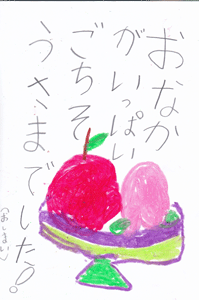 おなか
がいっぱい
ごちそ
うさまで
した!。